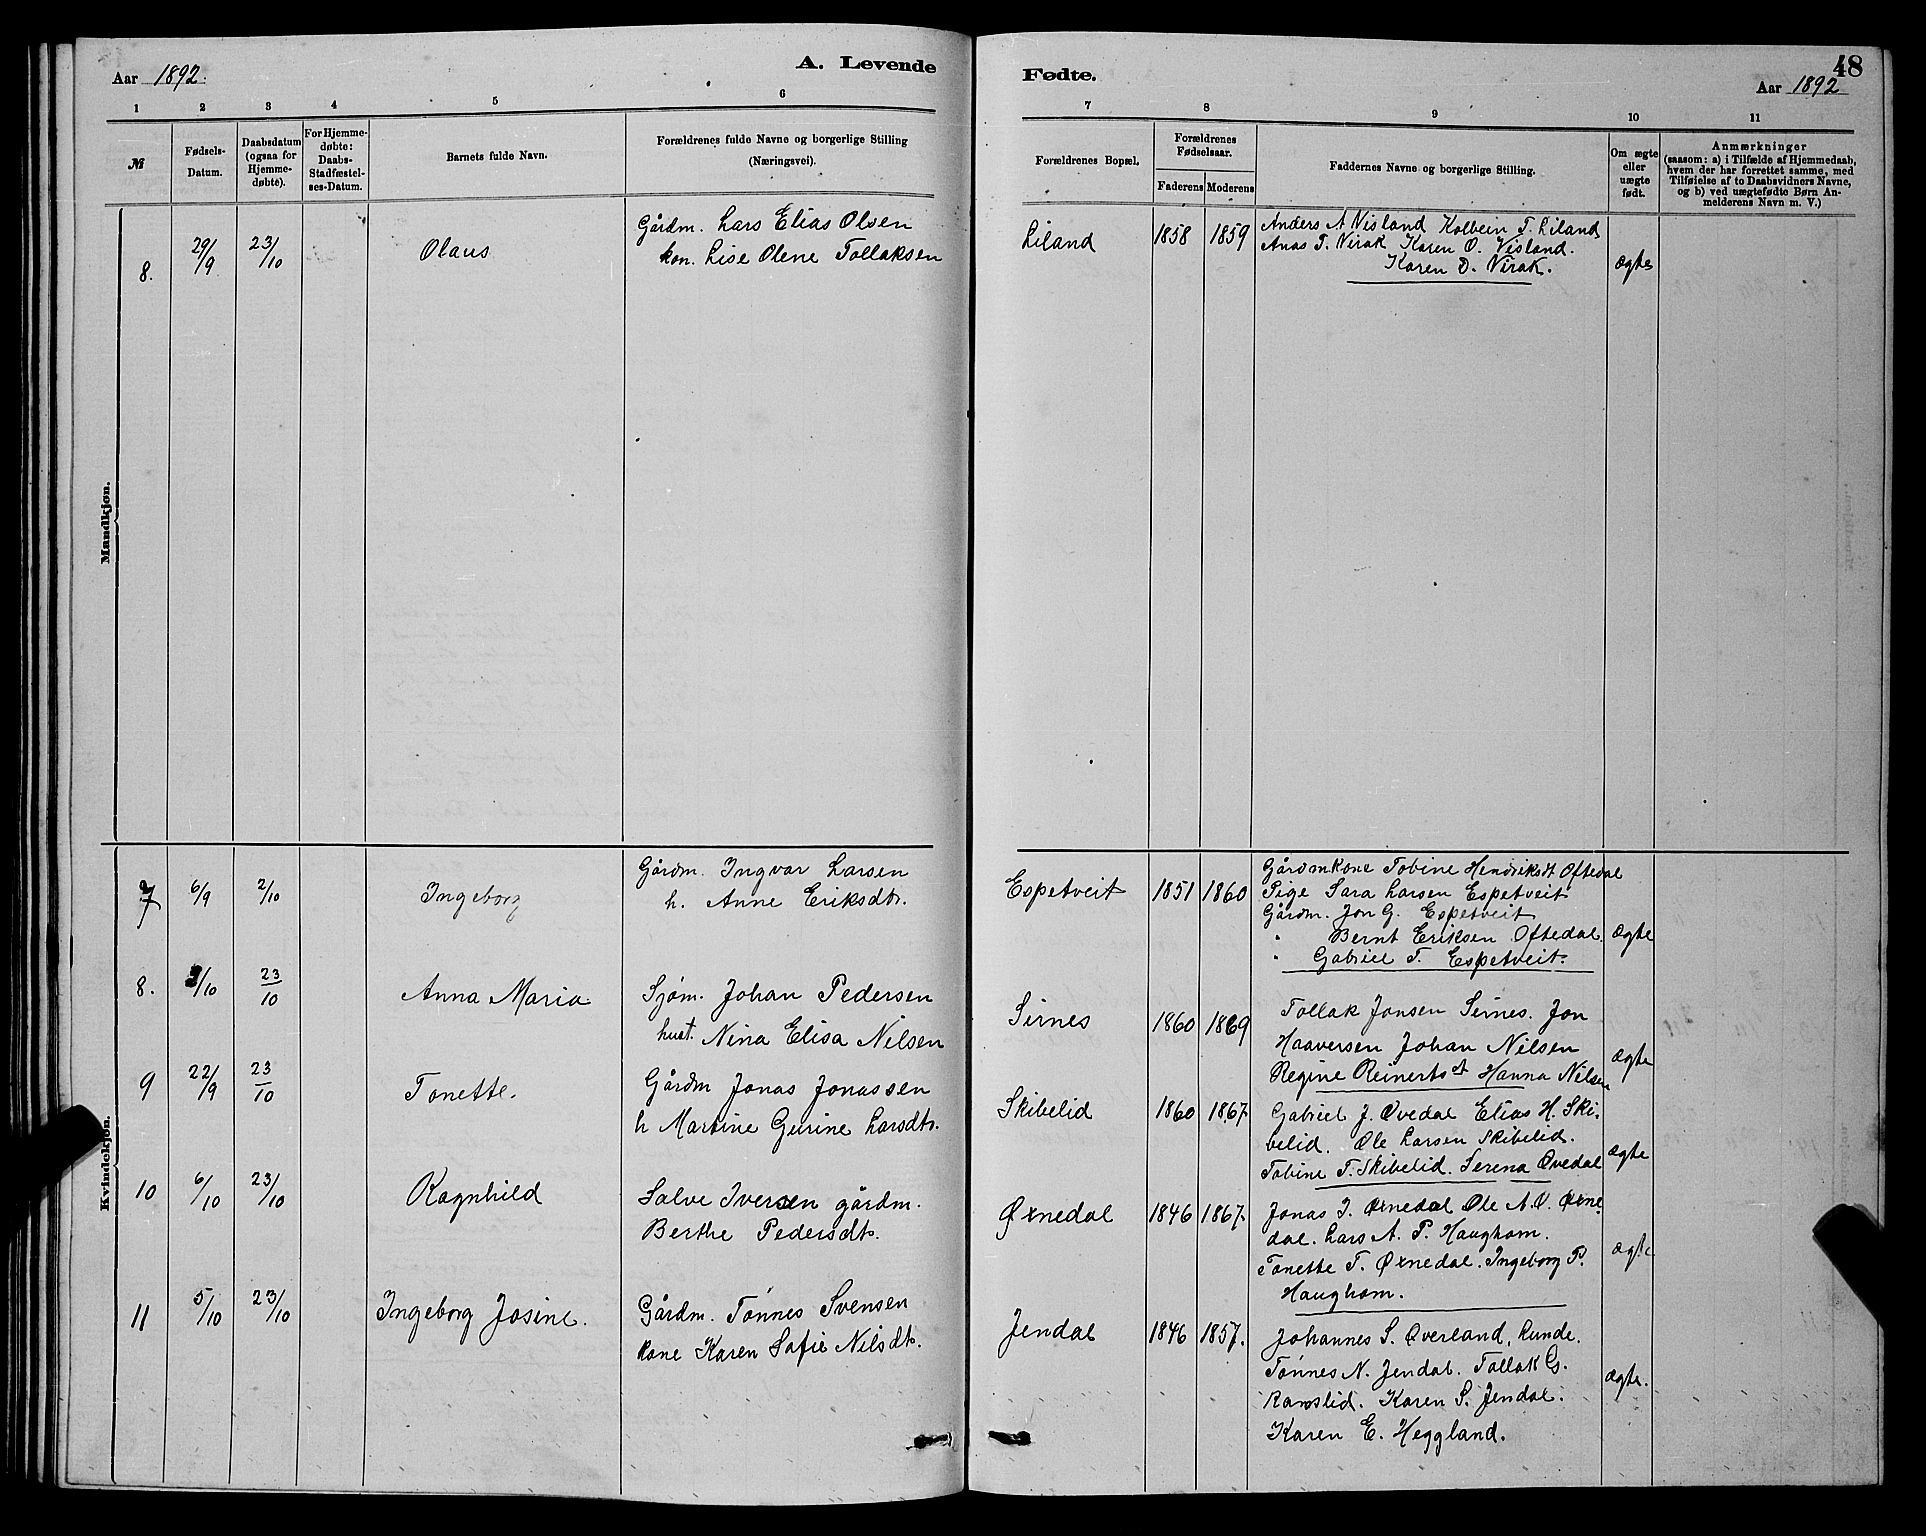 Aar 1892.
A. Levende
Fødte.
48
Aar 1892
1 2 3 4 5 6 7 8 9 10 11
№
Fødsels-
Datum.
Daabsdatum
(ogsaa for
Hjemme-
døbte).
For Hjemme-
døbte:
Daabs-
Stadfæstel-
ses-Datum.
Barnets fulde Navn.
Forældrenes fulde Navne og borgerlige Stilling
(Næringsvei).
Forældrenes Bopæl.
Forældrenes
Fødselsaar.
Faderens Moderens
Faddernes Navne og borgerlige Stilling.
Om ægte
eller
uægte
født.
Anmærkninger
(saasom: a) i Tilfælde af Hjemmedaab,
hvem der har forrettet samme, med
Tilføielse af to Daabsvidners Navne,
og b) ved uægtefødte Børn An-
melderens Navn m. V.)
Mandkjøn.
8. 29/9 23/10 Olaus
Gårdm. Lars Elias Olsen
kon. Lise Olene Tollaksen
Liland 1858 1859
Anders A Visland Kolbein T. Liland
Anas T. Virak Karen O. Visland.
Karen D. Virak.
ægte
Kvindekjøn.
7 6/9 2/10 Ingeborg
Gårdm. Ingvar Larsen
h. Anne Eriksdtr.
Espetveit 1851 1860
Gårdmkone Tobine Hendriksdt Oftedal
Pige Sara Larsen Espetveit
Gårdm. Jon G. Espetveit
" Bernt Eriksen Oftedal.
" Gabriel T. Espetveit.
ægte
8. 3/10 23/10 Anna Maria
Sjøm. Johan Pedersen
hust. Nina Elisa Nilsen
Sirnes 1860 1869
Tollak Jonsen Sirnes. Jon
Haaversen Johan Nilsen
Regine Reinertsdt Hanna Nilsen
ægte
9 22/9 23/10 Tonette.
Gårdm Jonas Jonassen
h Martine Gurine Larsdtr.
Skibelid 1860 1867.
Gabriel J. Øvedal Elias H. Ski-
belid. Ole Larsen Skibelid.
Tobine T. Skibelid. Serena Øvedal
ægte
10 6/10 23/10 Ragnhild
Salve Iversen gårdm.
Berthe Pedersdtr.
Øxnedal 1846 1867.
Jonas I. Øxnedal Ole A. V. Øxne-
dal. Lars A. P. Haughom.
Tonette T. Øxnedal. Ingeborg P.
Haughom.
ægte
11 5/10 23/10 Ingeborg Josine.
Gårdm. Tønnes Svensen
kone Karen Sofie Nilsdtr.
Jendal 1846 1857.
Johannes S. Øverland, Lunde.
Tønnes N. Jendal. Tollak G.
Ramslid. Karen S. Jendal.
Karen E. Heggland.
ægte.